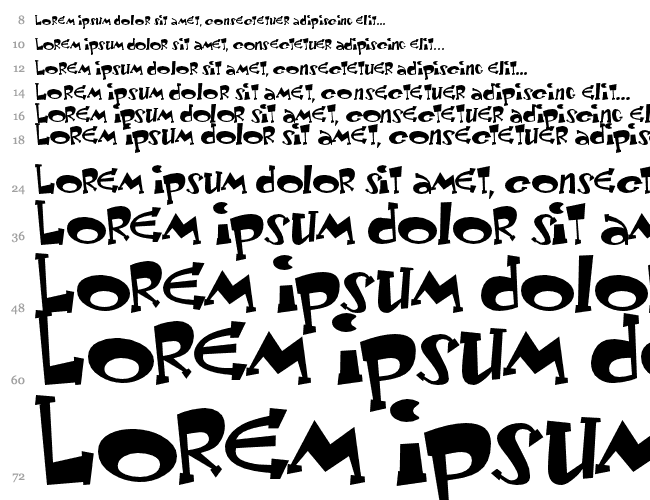 8 Lorem ipsum dolor sit amet, consectetuer adipiscing elit...
10 Lorem ipsum dolor sit amet, consectetuer adipiscing elit...
12 Lorem ipsum dolor sit amet, consectetuer adipiscing elit...
14 Lorem ipsum dolor sit amet, consectetuer adipiscing elit...
16 Lorem ipsum dolor sit amet, consectetuer adipiscing el
18 Lorem ipsum dolor sit amet, consectetuer adipis
24 Lorem ipsum dolor sit amet, consect
36 Lorem ipsum dolor sit am
48 Lorem ipsum dolo
60 Lorem ipsum d
72 Lorem ipsum